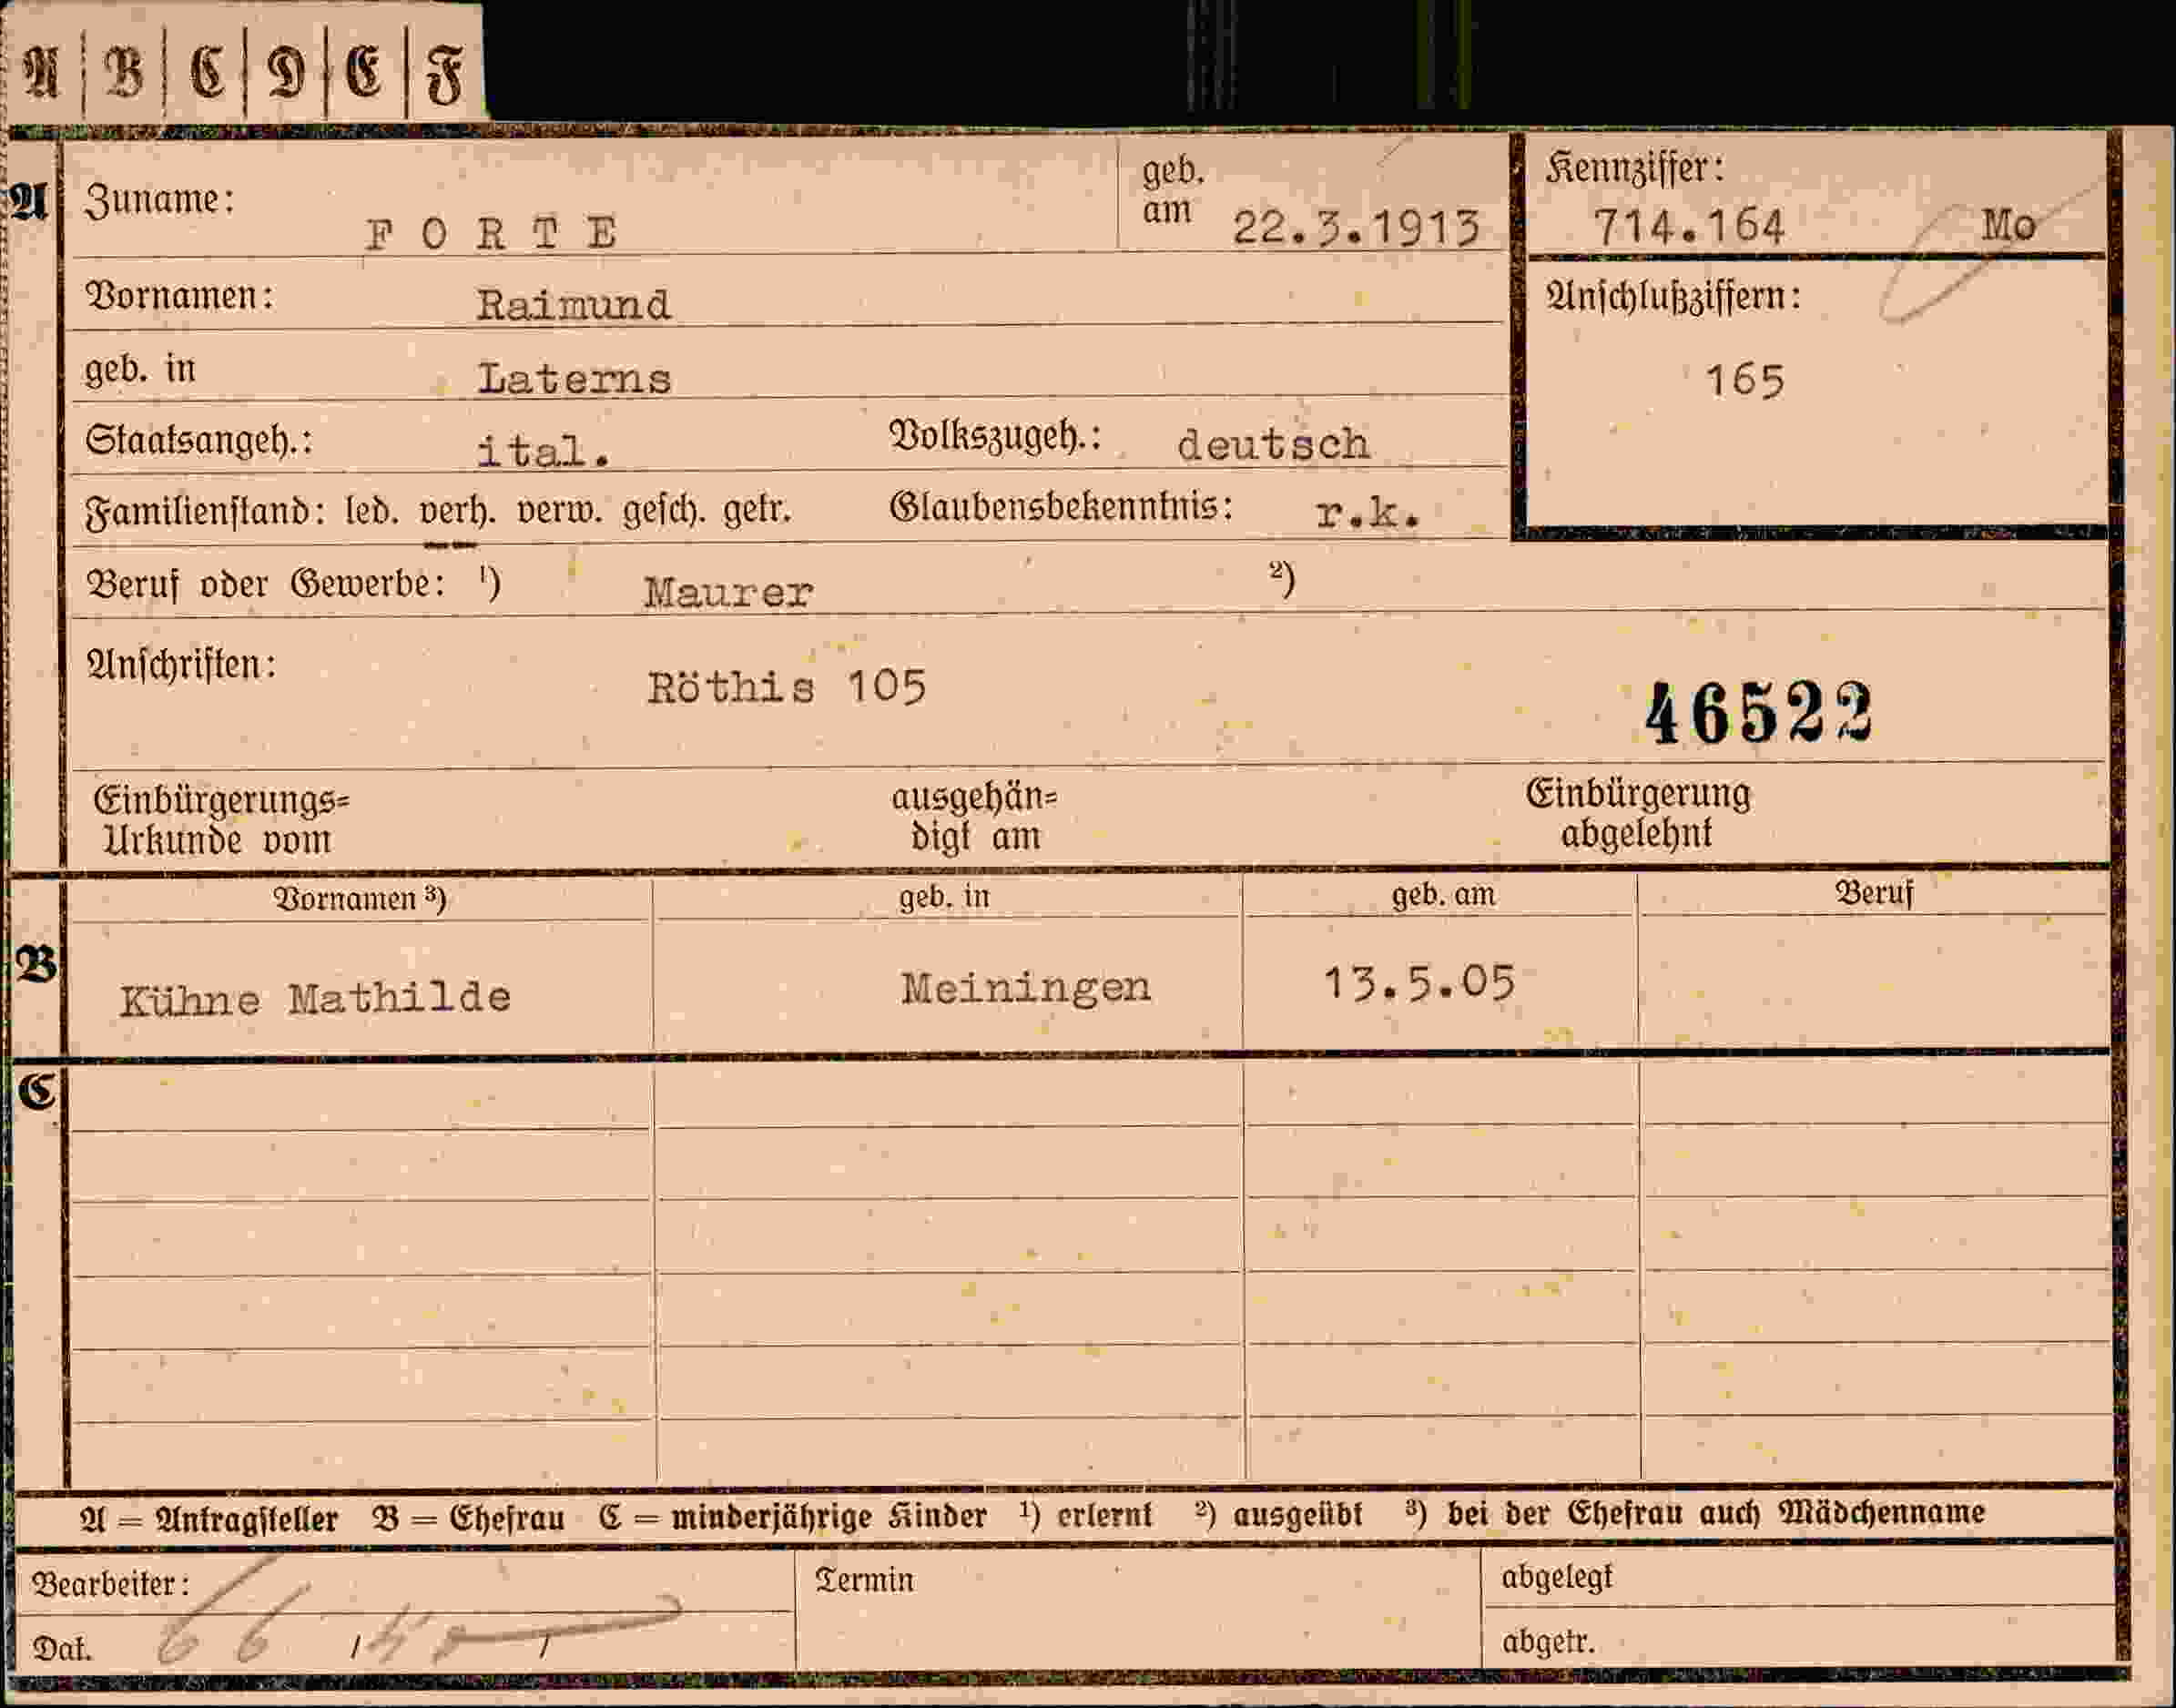 A | B | C | D | E | F
A Zuname: FORTE geb. am 22.3.1913
Kennziffer: 714.164 Mo
Vornamen: Raimund
Anschlußziffern: 165
geb. in Laterns
Staatsangeh.: ital. Volkszugeh.: deutsch
Familienstand: led. verh. verw. gesch. getr. Glaubensbekenntnis: r.k.
Beruf oder Gewerbe: ¹) Maurer ²)
Anschriften: Röthis 105
46522
Einbürgerungs=
Urkunde vom
ausgehän=
digt am
Einbürgerung
abgelehnt
Vornamen ³) geb. in geb. am Beruf
B Kühne Mathilde Meiningen 13.5.05
C
A = Antragsteller B = Ehefrau C = minderjährige Kinder ¹) erlernt ²) ausgeübt ³) bei der Ehefrau auch Mädchenname
Bearbeiter: Termin abgelegt
Dat. abgetr.